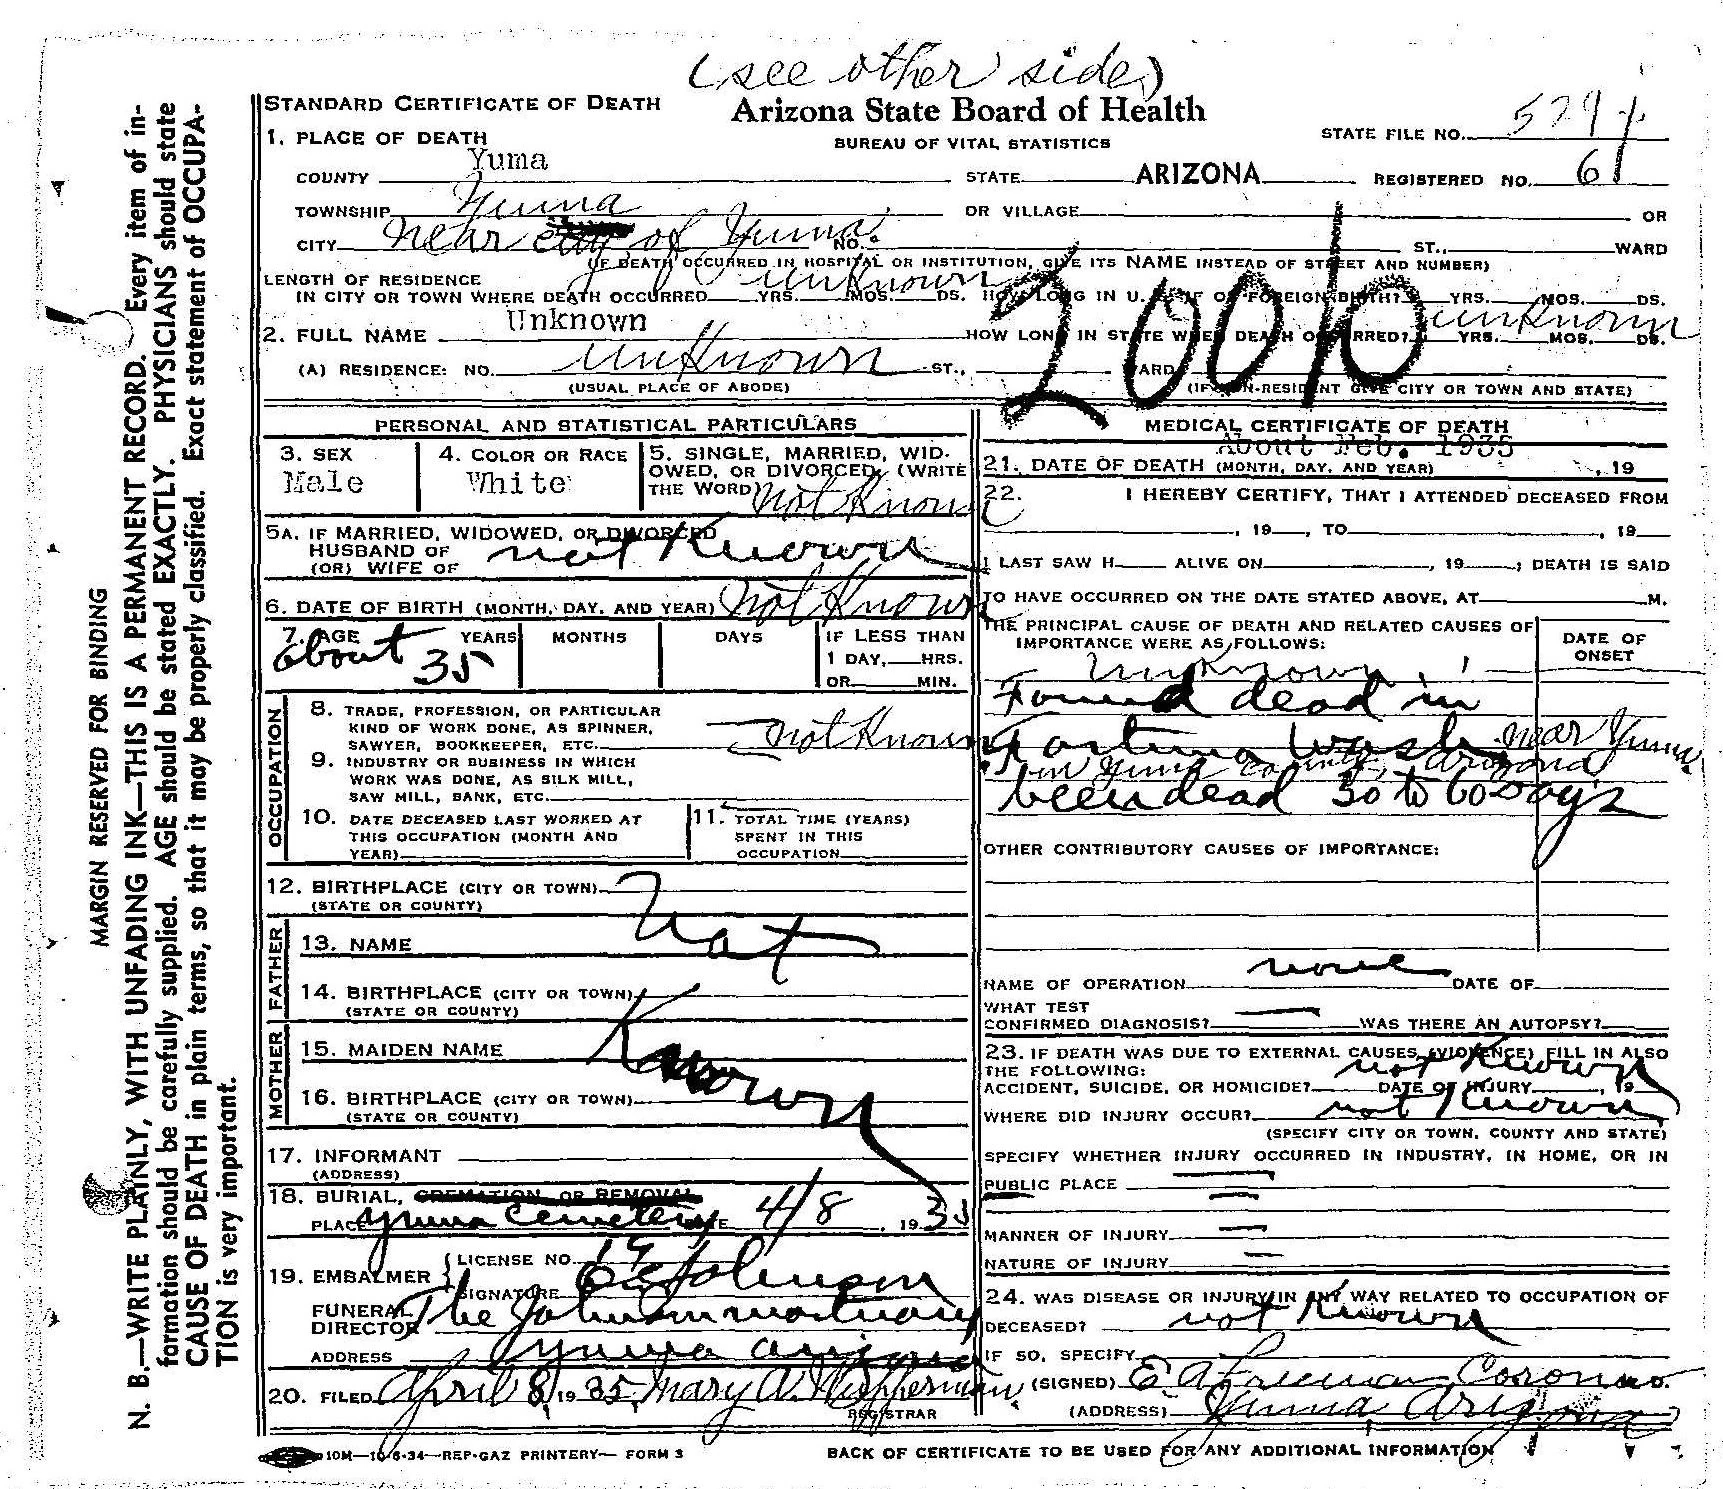 (see other side)
STANDARD CERTIFICATE OF DEATH
Arizona State Board of Health
BUREAU OF VITAL STATISTICS
STATE FILE NO. 529
1. PLACE OF DEATH
COUNTY Yuma STATE ARIZONA REGISTERED NO. 61
TOWNSHIP Yuma OR VILLAGE OR
CITY Near city of Yuma NO. ST., WARD
(IF DEATH OCCURRED IN HOSPITAL OR INSTITUTION, GIVE ITS NAME INSTEAD OF STREET AND NUMBER)
LENGTH OF RESIDENCE
IN CITY OR TOWN WHERE DEATH OCCURRED unknown YRS. MOS. DS. HOW LONG IN U. S. IF OF FOREIGN BIRTH? YRS. MOS. DS.
2. FULL NAME Unknown HOW LONG IN STATE WHEN DEATH OCCURRED? unknown YRS. MOS. DS.
(A) RESIDENCE: NO. unknown ST., WARD
(USUAL PLACE OF ABODE) (IF NON-RESIDENT GIVE CITY OR TOWN AND STATE)
200
PERSONAL AND STATISTICAL PARTICULARS
3. SEX
Male
4. COLOR OR RACE
White
5. SINGLE, MARRIED, WID-
OWED, OR DIVORCED, (WRITE
THE WORD) not Known
5A. IF MARRIED, WIDOWED, OR DIVORCED
HUSBAND OF
(OR) WIFE OF not Known
6. DATE OF BIRTH (MONTH, DAY, AND YEAR) Not Known
7. AGE YEARS MONTHS DAYS IF LESS THAN
about 35 1 DAY, HRS.
OR MIN.
OCCUPATION
8. TRADE, PROFESSION, OR PARTICULAR
KIND OF WORK DONE, AS SPINNER,
SAWYER, BOOKKEEPER, ETC. not Known
9. INDUSTRY OR BUSINESS IN WHICH
WORK WAS DONE, AS SILK MILL,
SAW MILL, BANK, ETC.
10. DATE DECEASED LAST WORKED AT
THIS OCCUPATION (MONTH AND
YEAR)
11. TOTAL TIME (YEARS)
SPENT IN THIS
OCCUPATION
12. BIRTHPLACE (CITY OR TOWN)
(STATE OR COUNTY)
FATHER
13. NAME Not
14. BIRTHPLACE (CITY OR TOWN)
(STATE OR COUNTY)
MOTHER
15. MAIDEN NAME Known
16. BIRTHPLACE (CITY OR TOWN)
(STATE OR COUNTY)
17. INFORMANT
(ADDRESS)
18. BURIAL, CREMATION, OR REMOVAL
PLACE Yuma Cemetery DATE 4/8, 1935
19. EMBALMER LICENSE NO. 19
SIGNATURE Johnson
FUNERAL
DIRECTOR The Johnson mortuary
ADDRESS Yuma arizona
20. FILED April 8, 1935, Mary A.
REGISTRAR
MEDICAL CERTIFICATE OF DEATH
About Feb. 1935
21. DATE OF DEATH (MONTH, DAY, AND YEAR) , 19
22. I HEREBY CERTIFY, THAT I ATTENDED DECEASED FROM
, 19 , TO , 19
I LAST SAW H ALIVE ON , 19 ; DEATH IS SAID
TO HAVE OCCURRED ON THE DATE STATED ABOVE, AT M.
THE PRINCIPAL CAUSE OF DEATH AND RELATED CAUSES OF
IMPORTANCE WERE AS FOLLOWS:
DATE OF
ONSET
Unknown
Found dead in
Fortuna Wash near Yuma
in Yuma County, Arizona
been dead 30 to 60 Days
OTHER CONTRIBUTORY CAUSES OF IMPORTANCE:
NAME OF OPERATION none DATE OF
WHAT TEST
CONFIRMED DIAGNOSIS? WAS THERE AN AUTOPSY?
23. IF DEATH WAS DUE TO EXTERNAL CAUSES, (VIOLENCE) FILL IN ALSO
THE FOLLOWING:
ACCIDENT, SUICIDE, OR HOMICIDE? not Known DATE OF INJURY , 19
WHERE DID INJURY OCCUR? not Known
(SPECIFY CITY OR TOWN, COUNTY AND STATE)
SPECIFY WHETHER INJURY OCCURRED IN INDUSTRY, IN HOME, OR IN
PUBLIC PLACE
MANNER OF INJURY
NATURE OF INJURY
24. WAS DISEASE OR INJURY IN ANY WAY RELATED TO OCCUPATION OF
DECEASED? not Known
IF SO, SPECIFY
(SIGNED) E A Freeman Coroner
(ADDRESS) Yuma, Arizona
10M—10-6-34—REP-GAZ PRINTERY— FORM 3
BACK OF CERTIFICATE TO BE USED FOR ANY ADDITIONAL INFORMATION
MARGIN RESERVED FOR BINDING
N. B.—WRITE PLAINLY, WITH UNFADING INK—THIS IS A PERMANENT RECORD. Every item of in-
formation should be carefully supplied. AGE should be stated EXACTLY. PHYSICIANS should state
CAUSE OF DEATH in plain terms, so that it may be properly classified. Exact statement of OCCUPA-
TION is very important.